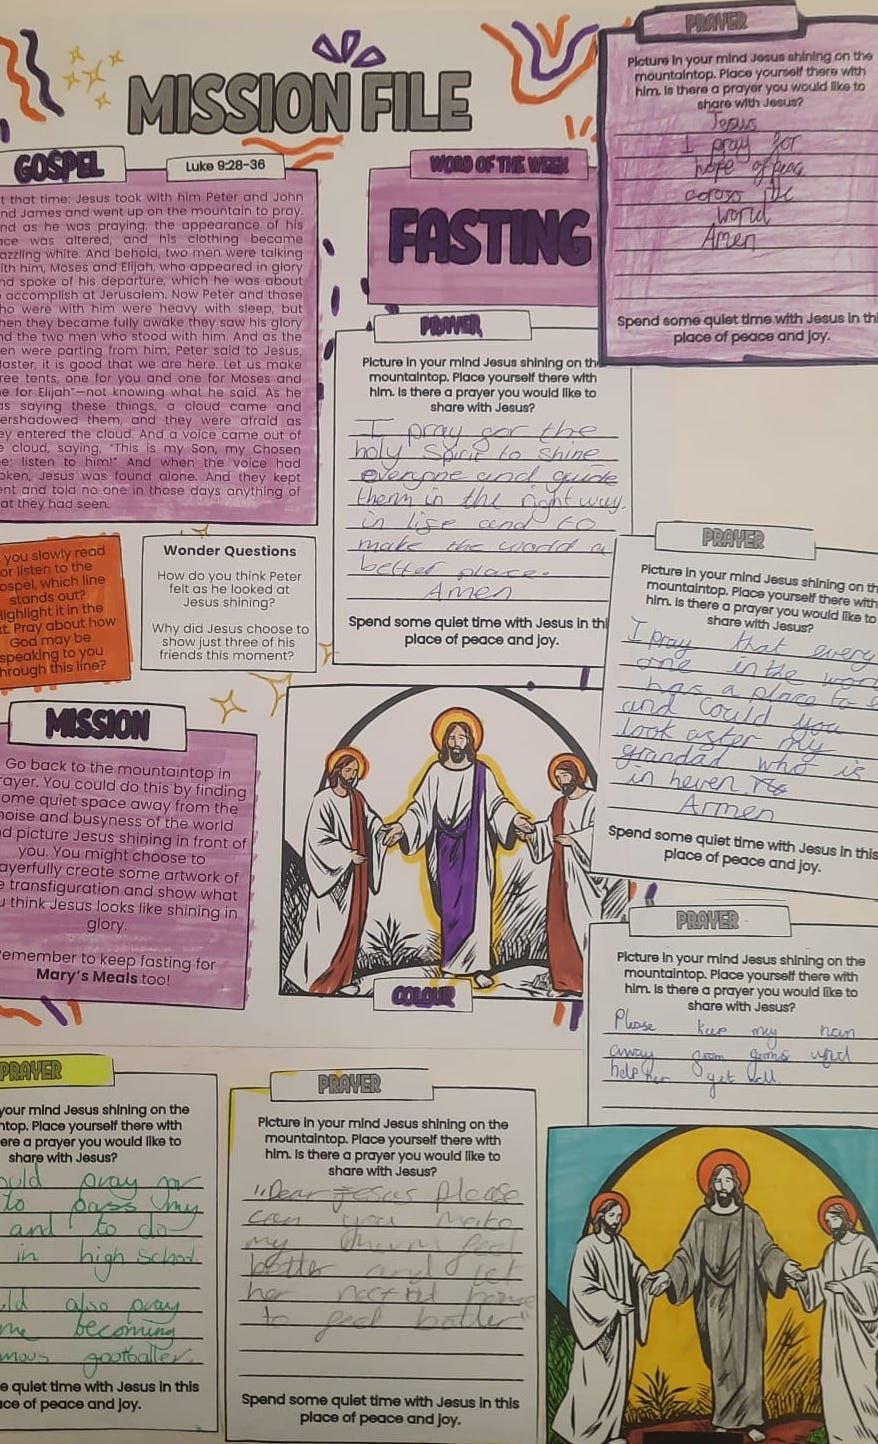 MISSION FILE
GOSPEL
Luke 9:28-36
t that time: Jesus took with him Peter and John
nd James and went up on the mountain to pray.
nd as he was praying, the appearance of his
ce was altered, and his clothing became
azzling white. And behold, two men were talking
ith him, Moses and Elijah, who appeared in glory
nd spoke of his departure, which he was about
accomplish at Jerusalem. Now Peter and those
ho were with him were heavy with sleep, but
hen they became fully awake they saw his glory
nd the two men who stood with him. And as the
en were parting from him, Peter said to Jesus,
aster, it is good that we are here. Let us make
ree tents, one for you and one for Moses and
e for Elijah"—not knowing what he said. As he
as saying these things, a cloud came and
ershadowed them, and they were afraid as
ey entered the cloud. And a voice came out of
e cloud, saying, "This is my Son, my Chosen
e; listen to him!" And when the voice had
oken, Jesus was found alone. And they kept
ent and told no one in those days anything of
at they had seen.
WORD OF THE WEEK
FASTING
PRAYER
Picture in your mind Jesus shining on the
mountaintop. Place yourself there with
him. Is there a prayer you would like to
share with Jesus?
Jesus
I pray for
hope of peace
across the
world
Amen
Spend some quiet time with Jesus in thi
place of peace and joy.
PRAYER
Picture in your mind Jesus shining on th
mountaintop. Place yourself there with
him. Is there a prayer you would like to
share with Jesus?
I pray for the
holy Spirit to shine
everyone and guide
them in the right way
in life and to
make the world a
better place.
Amen
Spend some quiet time with Jesus in thi
place of peace and joy.
you slowly read
or listen to the
ospel, which line
stands out?
Highlight it in the
t. Pray about how
God may be
speaking to you
hrough this line?
Wonder Questions
How do you think Peter
felt as he looked at
Jesus shining?
Why did Jesus choose to
show just three of his
friends this moment?
PRAYER
Picture in your mind Jesus shining on th
mountaintop. Place yourself there with
him. Is there a prayer you would like to
share with Jesus?
I pray that every
one in the wor
has a place to
and could you
look after my
grandad who is
in heven
Armen
Spend some quiet time with Jesus in this
place of peace and joy.
MISSION
Go back to the mountaintop in
rayer. You could do this by finding
ome quiet space away from the
noise and busyness of the world
nd picture Jesus shining in front of
you. You might choose to
ayerfully create some artwork of
e transfiguration and show what
u think Jesus looks like shining in
glory.
emember to keep fasting for
Mary's Meals too!
COLOUR
PRAYER
Picture in your mind Jesus shining on the
mountaintop. Place yourself there with
him. Is there a prayer you would like to
share with Jesus?
Please keep my nan
away from germs and
help her get well.
PRAYER
your mind Jesus shining on the
ntop. Place yourself there with
ere a prayer you would like to
share with Jesus?
ould pray for
to pass my
and to do
in high school.
ld also pray
me becoming
mous footballer.
e quiet time with Jesus in this
ce of peace and joy.
PRAYER
Picture in your mind Jesus shining on the
mountaintop. Place yourself there with
him. Is there a prayer you would like to
share with Jesus?
"Dear Jesus please
can you make
my mum feel
better and let
her
to feel better"
Spend some quiet time with Jesus in this
place of peace and joy.